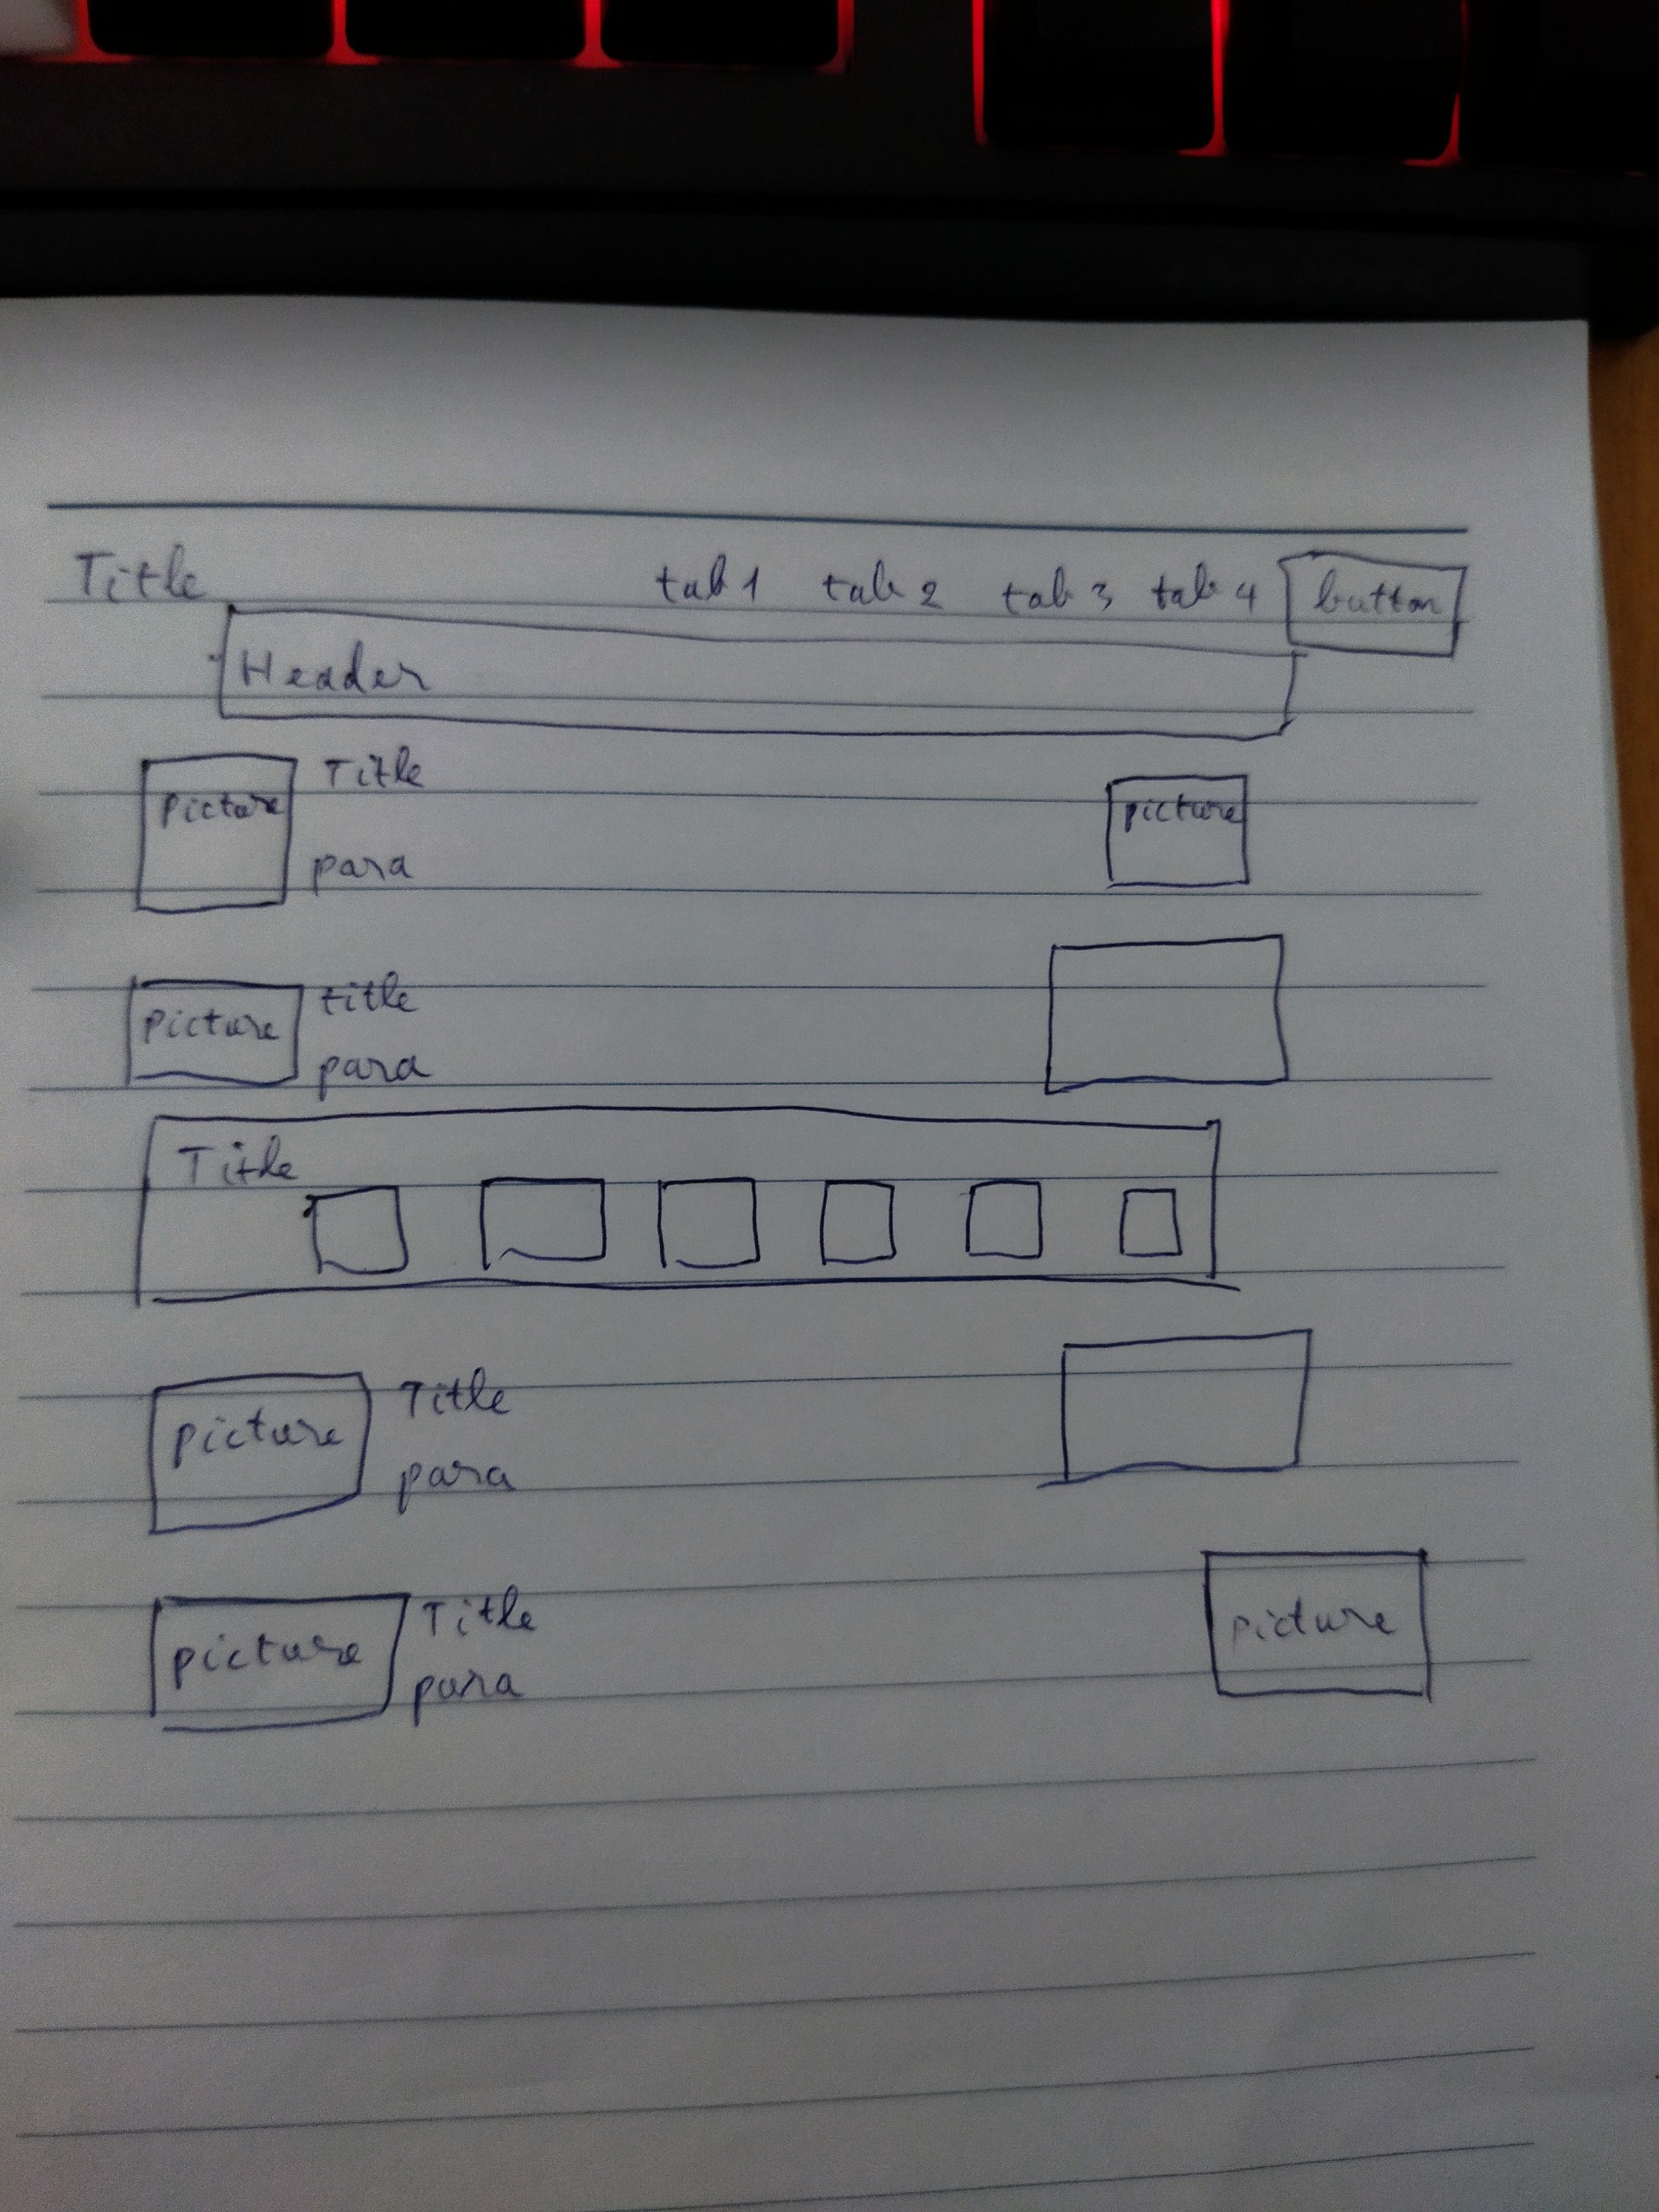 Title tab 1 tab 2 tab 3 tab 4 button
Header
picture Title picture
para
picture title
para
Title
picture Title
para
picture Title picture
para